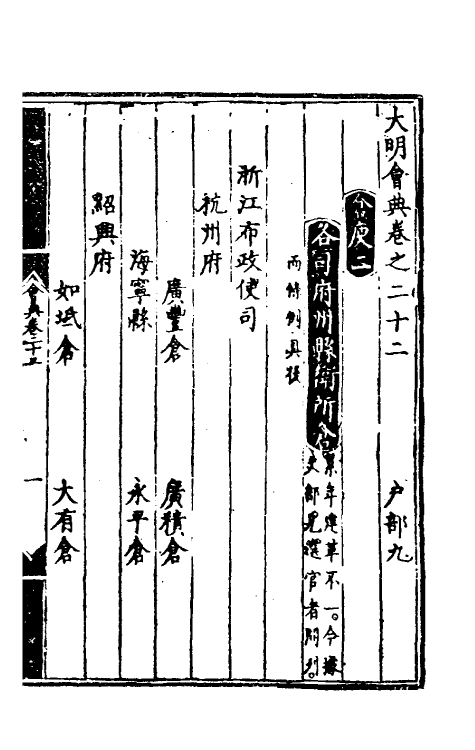 大明會典卷之二十二 戶部九
倉庾二
各司府州縣衛所倉 累年建革不一。今據吏部見選官者開列。
而條例具後
浙江布政使司
杭州府
廣豐倉 廣積倉
海寧縣 永平倉
紹興府
如坻倉 大有倉
會典卷二十二 一